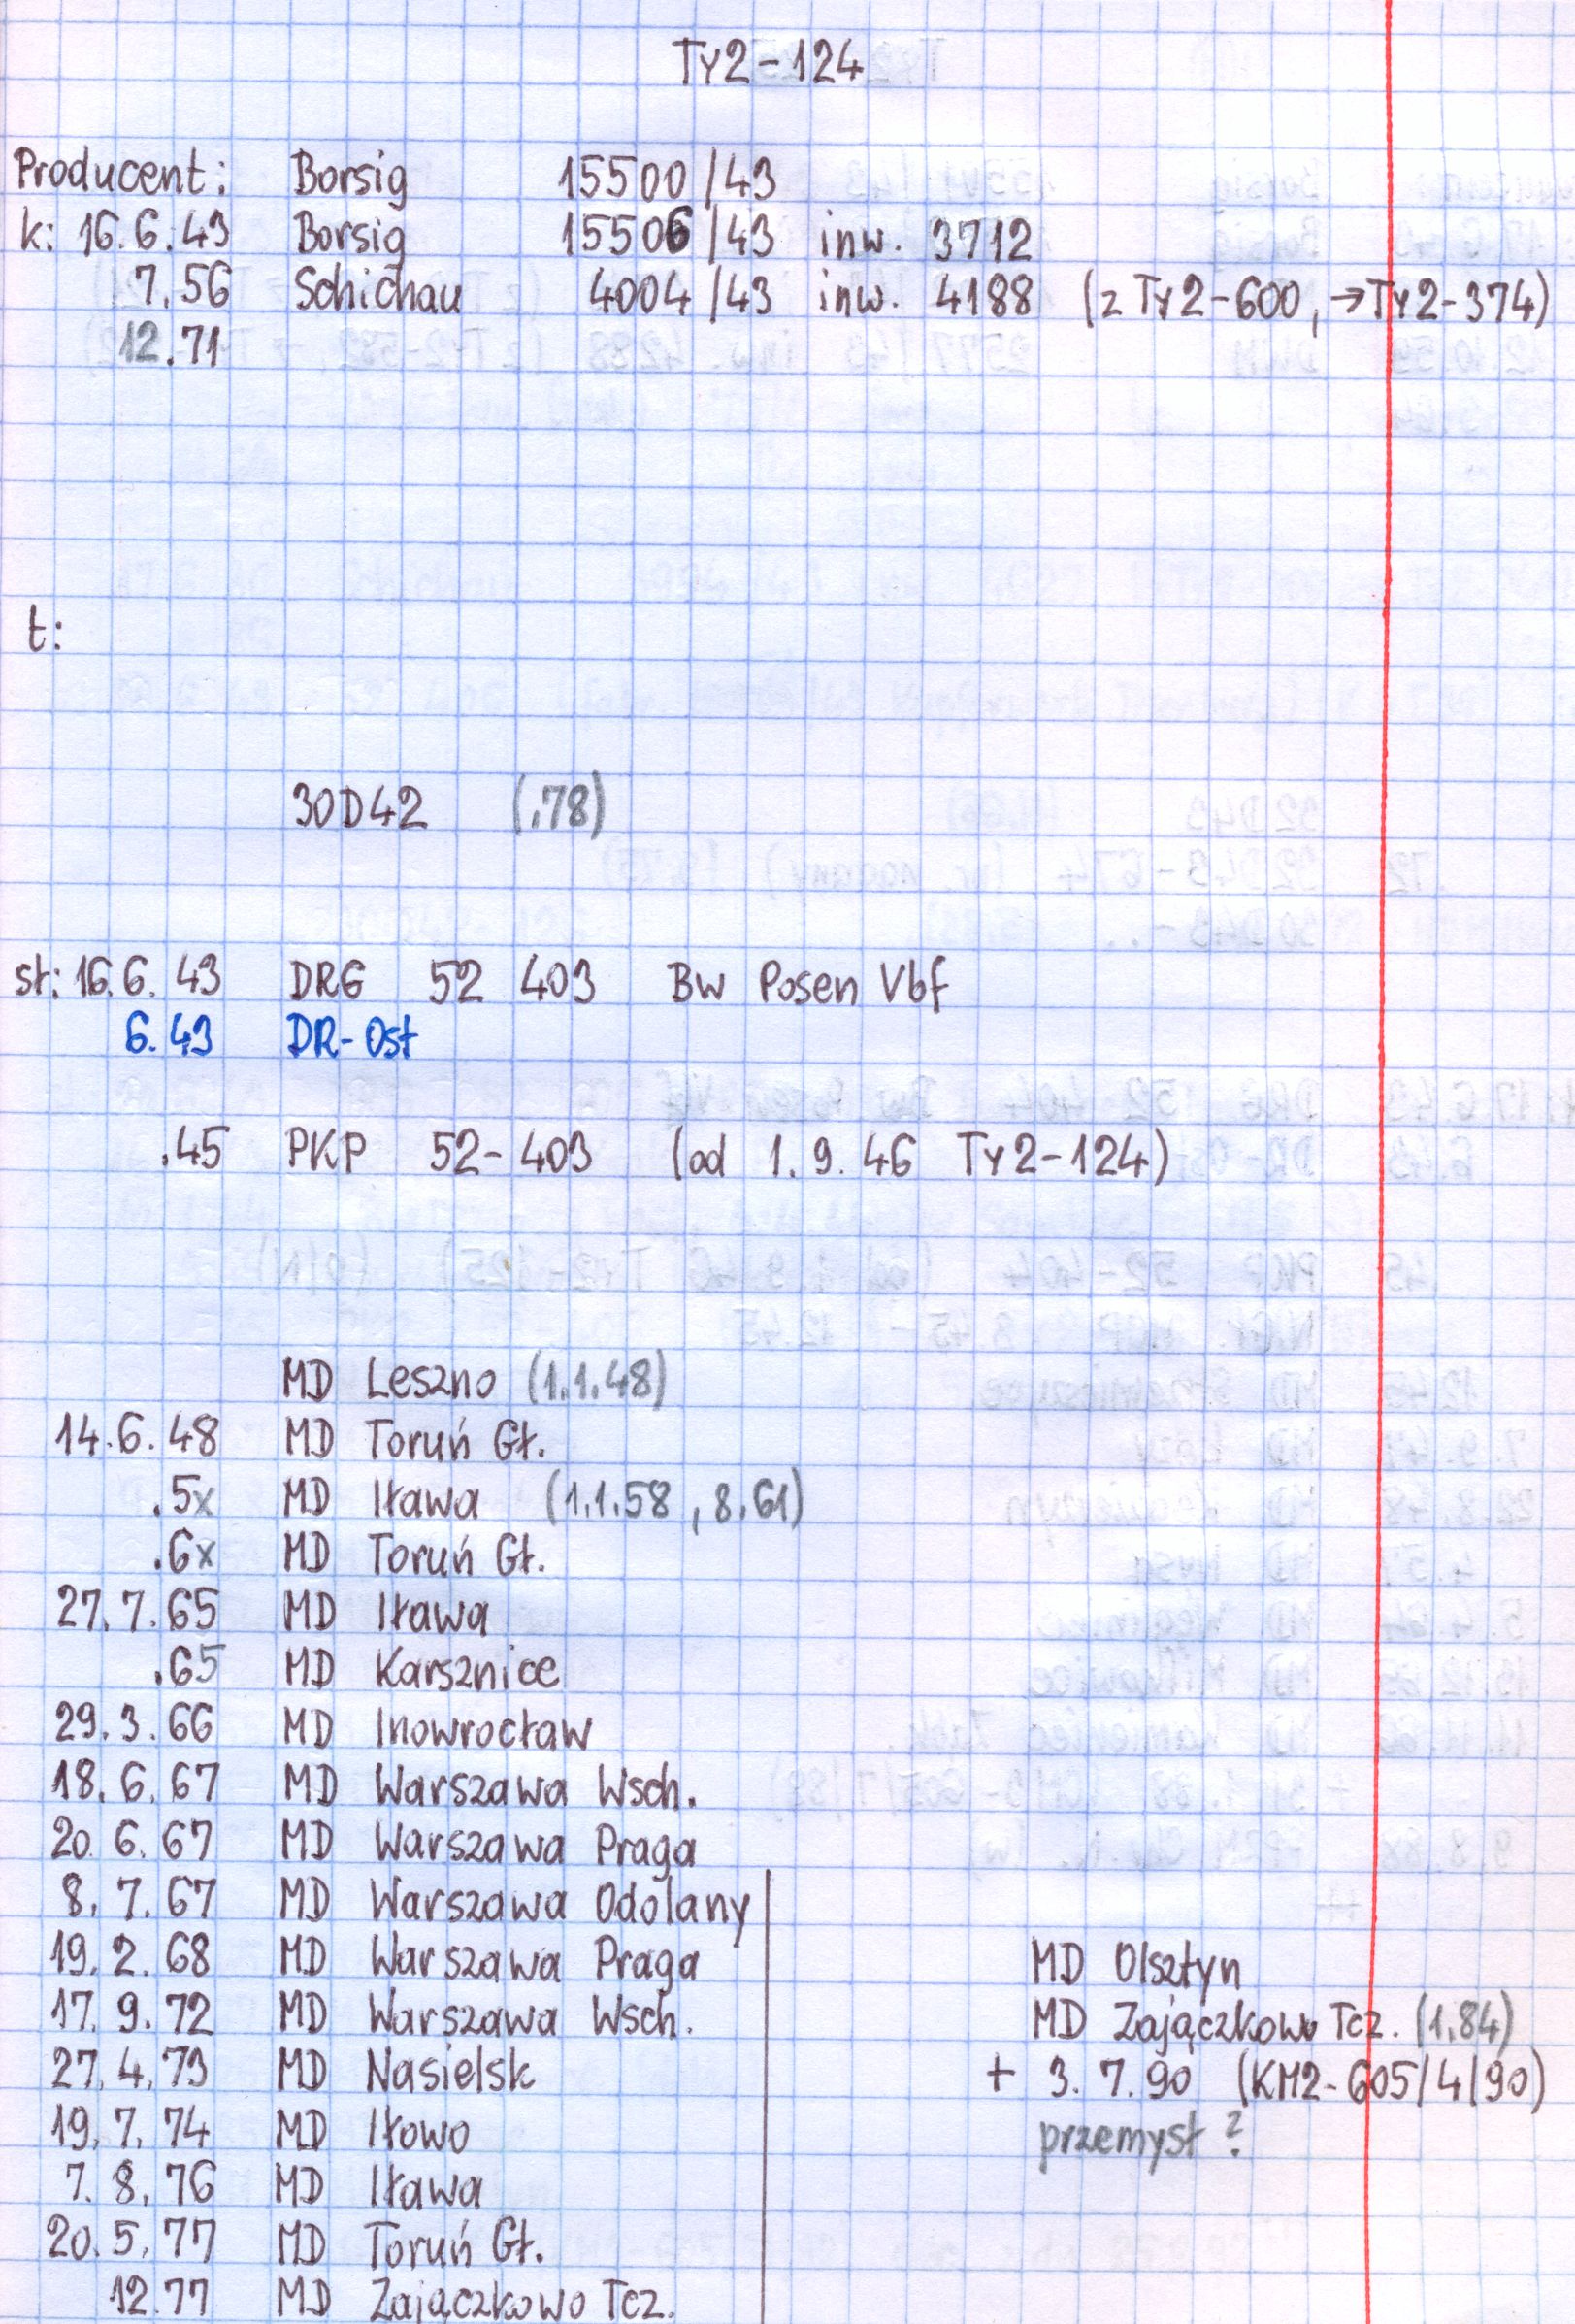 Ty2-124
Producent: Borsig 15500/43
k: 16.6.43 Borsig 15506/43 inw. 3712
7.56 Schichau 4004/43 inw. 4188 (z Ty2-600, →Ty2-374)
12.71
t:
30D42 (.78)
st: 16.6.43 DRG 52 403 Bw Posen Vbf
6.43 DR-Ost
.45 PKP 52-403 (od 1.9.46 Ty2-124)
MD Leszno (1.1.48)
14.6.48 MD Toruń Gł.
.5x MD Iława (1.1.58, 8.61)
.6x MD Toruń Gł.
27.7.65 MD Iława
.65 MD Karsznice
29.3.66 MD Inowrocław
18.6.67 MD Warszawa Wsch.
20.6.67 MD Warszawa Praga
8.7.67 MD Warszawa Odolany
19.2.68 MD Warszawa Praga
17.9.72 MD Warszawa Wsch.
27.4.73 MD Nasielsk
19.7.74 MD Iłowo
7.8.76 MD Iława
20.5.77 MD Toruń Gł.
12.77 MD Zajączkowo Tcz.
MD Olsztyn
MD Zajączkowo Tcz. (1.84)
+ 3.7.90 (KM2-605/4/90)
przemysł?